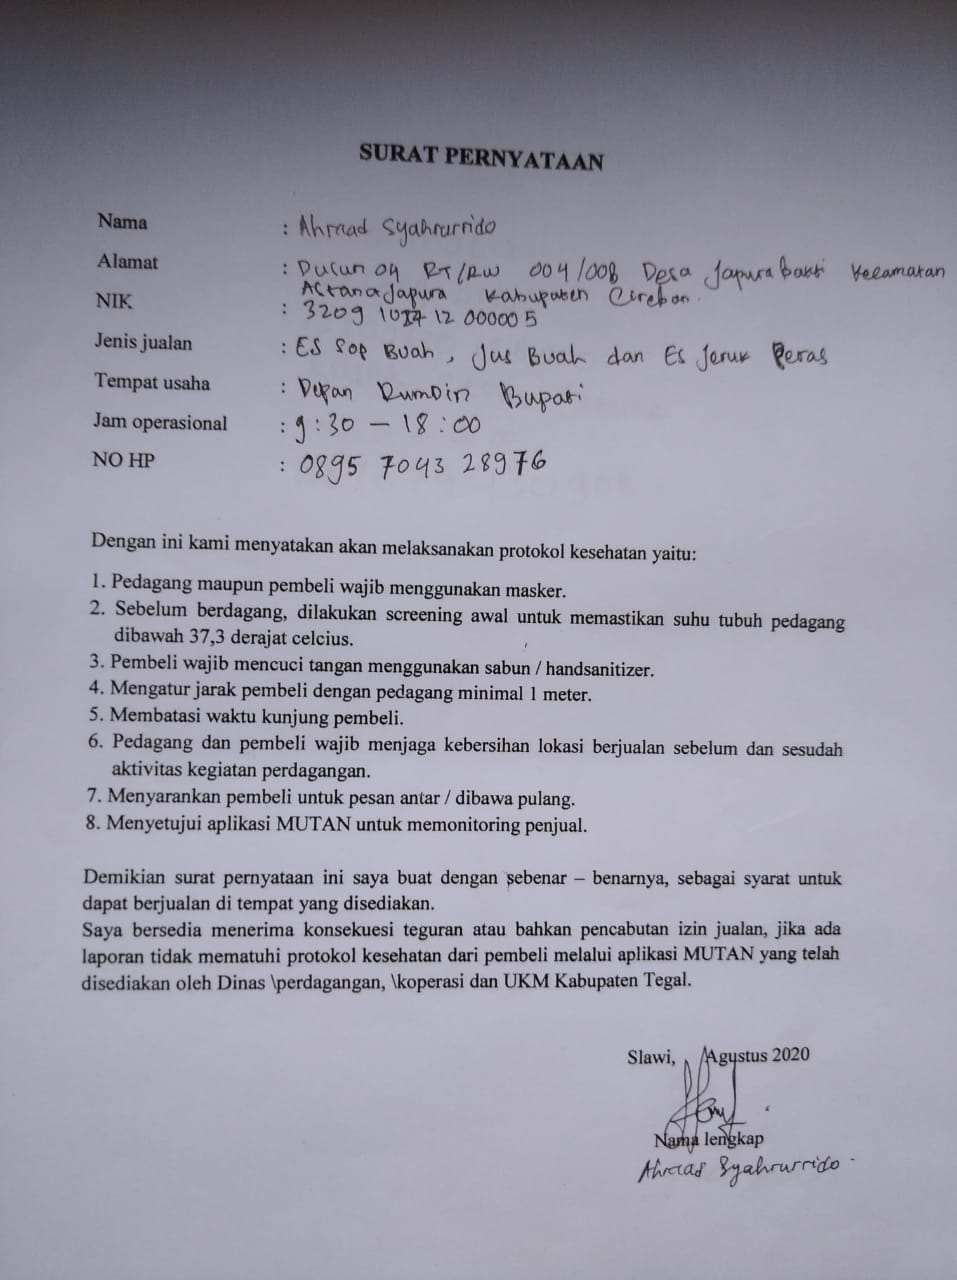 SURAT PERNYATAAN
Nama : Ahmad Syahrurrido
Alamat : Dusun 04 RT/RW 004/008 Desa Japura bakti Kecamatan
Astanajapura Kabupaten Cirebon.
NIK : 3209 1012 00000 5
Jenis jualan : ES Sop Buah, Jus Buah dan Es Jeruk Peras
Tempat usaha : Depan Rumdin Bupati
Jam operasional : 9:30 – 18:00
NO HP : 0895 7043 28976
Dengan ini kami menyatakan akan melaksanakan protokol kesehatan yaitu:
1. Pedagang maupun pembeli wajib menggunakan masker.
2. Sebelum berdagang, dilakukan screening awal untuk memastikan suhu tubuh pedagang
dibawah 37,3 derajat celcius.
3. Pembeli wajib mencuci tangan menggunakan sabun / handsanitizer.
4. Mengatur jarak pembeli dengan pedagang minimal 1 meter.
5. Membatasi waktu kunjung pembeli.
6. Pedagang dan pembeli wajib menjaga kebersihan lokasi berjualan sebelum dan sesudah
aktivitas kegiatan perdagangan.
7. Menyarankan pembeli untuk pesan antar / dibawa pulang.
8. Menyetujui aplikasi MUTAN untuk memonitoring penjual.
Demikian surat pernyataan ini saya buat dengan sebenar – benarnya, sebagai syarat untuk
dapat berjualan di tempat yang disediakan.
Saya bersedia menerima konsekuesi teguran atau bahkan pencabutan izin jualan, jika ada
laporan tidak mematuhi protokol kesehatan dari pembeli melalui aplikasi MUTAN yang telah
disediakan oleh Dinas \perdagangan, \koperasi dan UKM Kabupaten Tegal.
Slawi, Agustus 2020
Nama lengkap
Ahmad Syahrurrido